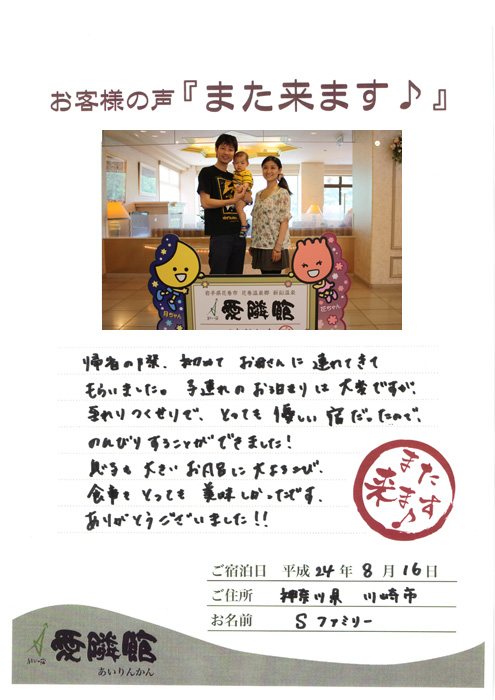 お客様の声『また来ます♪』
月ちゃん
花ちゃん
岩手県花巻市 花巻温泉郷 新鉛温泉
愛隣館
帰省の際、初めて お母さんに 連れてきて
もらいました。子連れの お泊まりは 大変ですが、
至れりつくせりで、とっても 優しい 宿だったので、
のんびりすることができました!
息子も 大きい お風呂に 大よろこび、
食事も とっても 美味しかったです。
ありがとうございました!!
また来ます♪
ご宿泊日 平成24年 8月16日
ご住所 神奈川県 川崎市
お名前 S ファミリー
愛隣館
あいりんかん